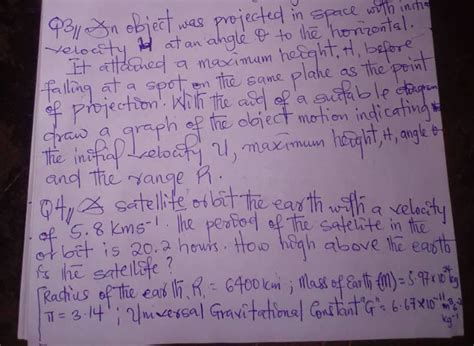 Q3// An object was projected in space with initial
velocity U at an angle θ to the horizontal.
It attained a maximum height, H, before
falling at a spot on the same plane as the point
of projection. With the aid of a suitable diagram
draw a graph of the object motion indicating
the initial velocity U, maximum height, H, angle θ
and the range R.
Q4// A satellite orbit the earth with a velocity
of 5.8 kms⁻¹. The period of the satelite in the
orbit is 20.2 hours. How high above the earth
is the satellite?
[Radius of the earth, R = 6400km; Mass of Earth (M) = 5.97×10²⁴ kg
π = 3.14; Universal Gravitational Constant "G" = 6.67×10⁻¹¹ m³s⁻² kg⁻¹